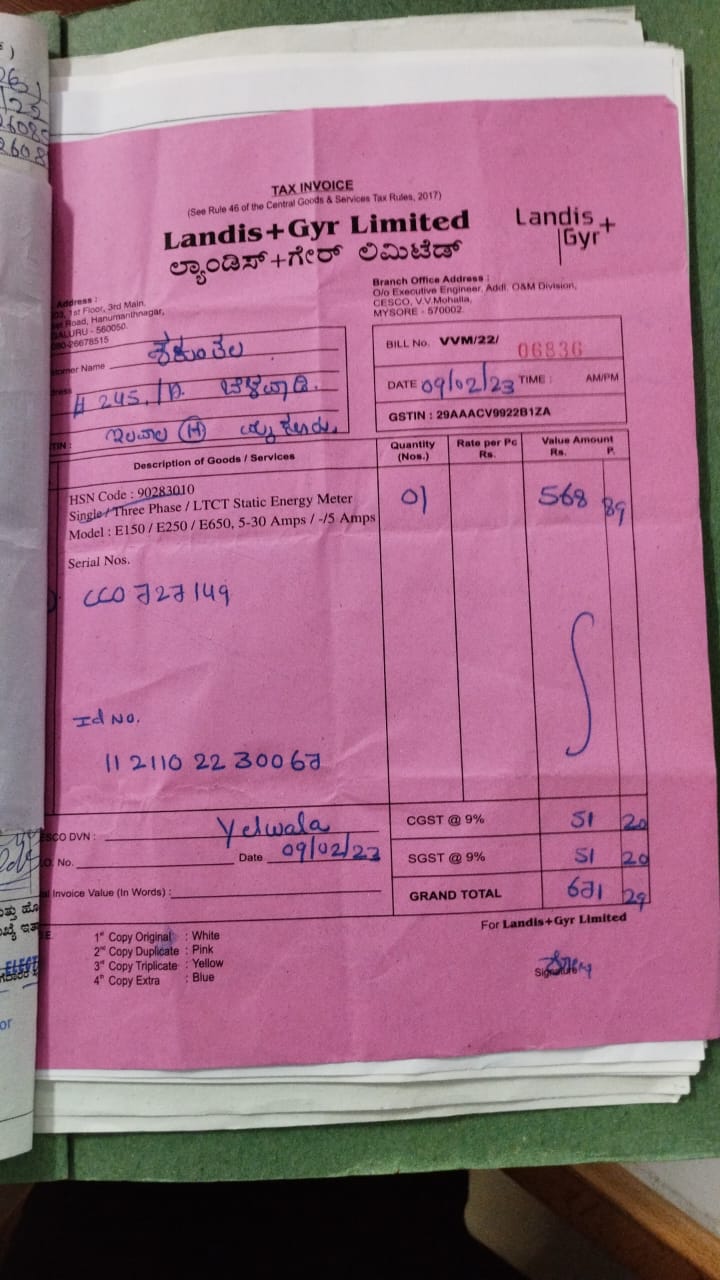 TAX INVOICE
(See Rule 46 of the Central Goods & Services Tax Rules, 2017)
Landis+Gyr Limited
ಲ್ಯಾಂಡಿಸ್+ಗೇರ್ ಲಿಮಿಟೆಡ್
Landis+
Gyr
Address :
1st Floor, 3rd Main,
Road, Hanumanthnagar,
560050.
26678515
Branch Office Address :
O/o Executive Engineer, Addl. O&M Division,
CESCO, V.V.Mohalla,
MYSORE - 570002.
Name ಶಕುಂತಲ
# 245,
BILL No. VVM/22/ 06836
DATE 09/02/23 TIME : AM/PM
GSTIN : 29AAACV9922B1ZA
Description of Goods / Services
Quantity (Nos.)
Rate per Pc Rs.
Value Amount Rs. P.
HSN Code : 90283010
Single / Three Phase / LTCT Static Energy Meter
Model : E150 / E250 / E650, 5-30 Amps / -/5 Amps
01 568 89
Serial Nos.
CCO 727149
Id No.
11 2110 22 30067
DVN : Yelwala
No. Date 09/02/23
Invoice Value (In Words) :
CGST @ 9% 51 20
SGST @ 9% 51 20
GRAND TOTAL 671 29
For Landis+Gyr Limited
1st Copy Original : White
2nd Copy Duplicate : Pink
3rd Copy Triplicate : Yellow
4th Copy Extra : Blue
Signature